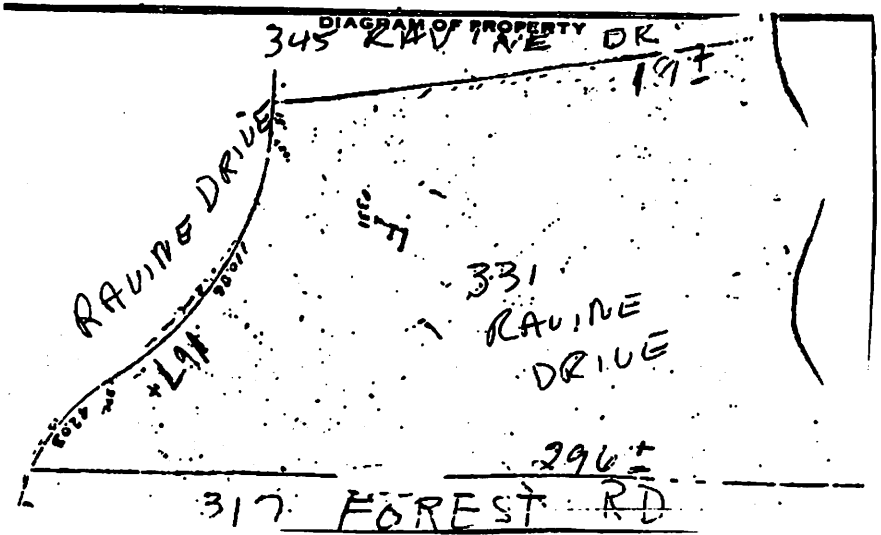 DIAGRAM OF PROPERTY
345 RAVINE DR
197±
RAVINE DRIVE
331
RAVINE
DRIVE
110.96
42.03
296±
317 FOREST RD